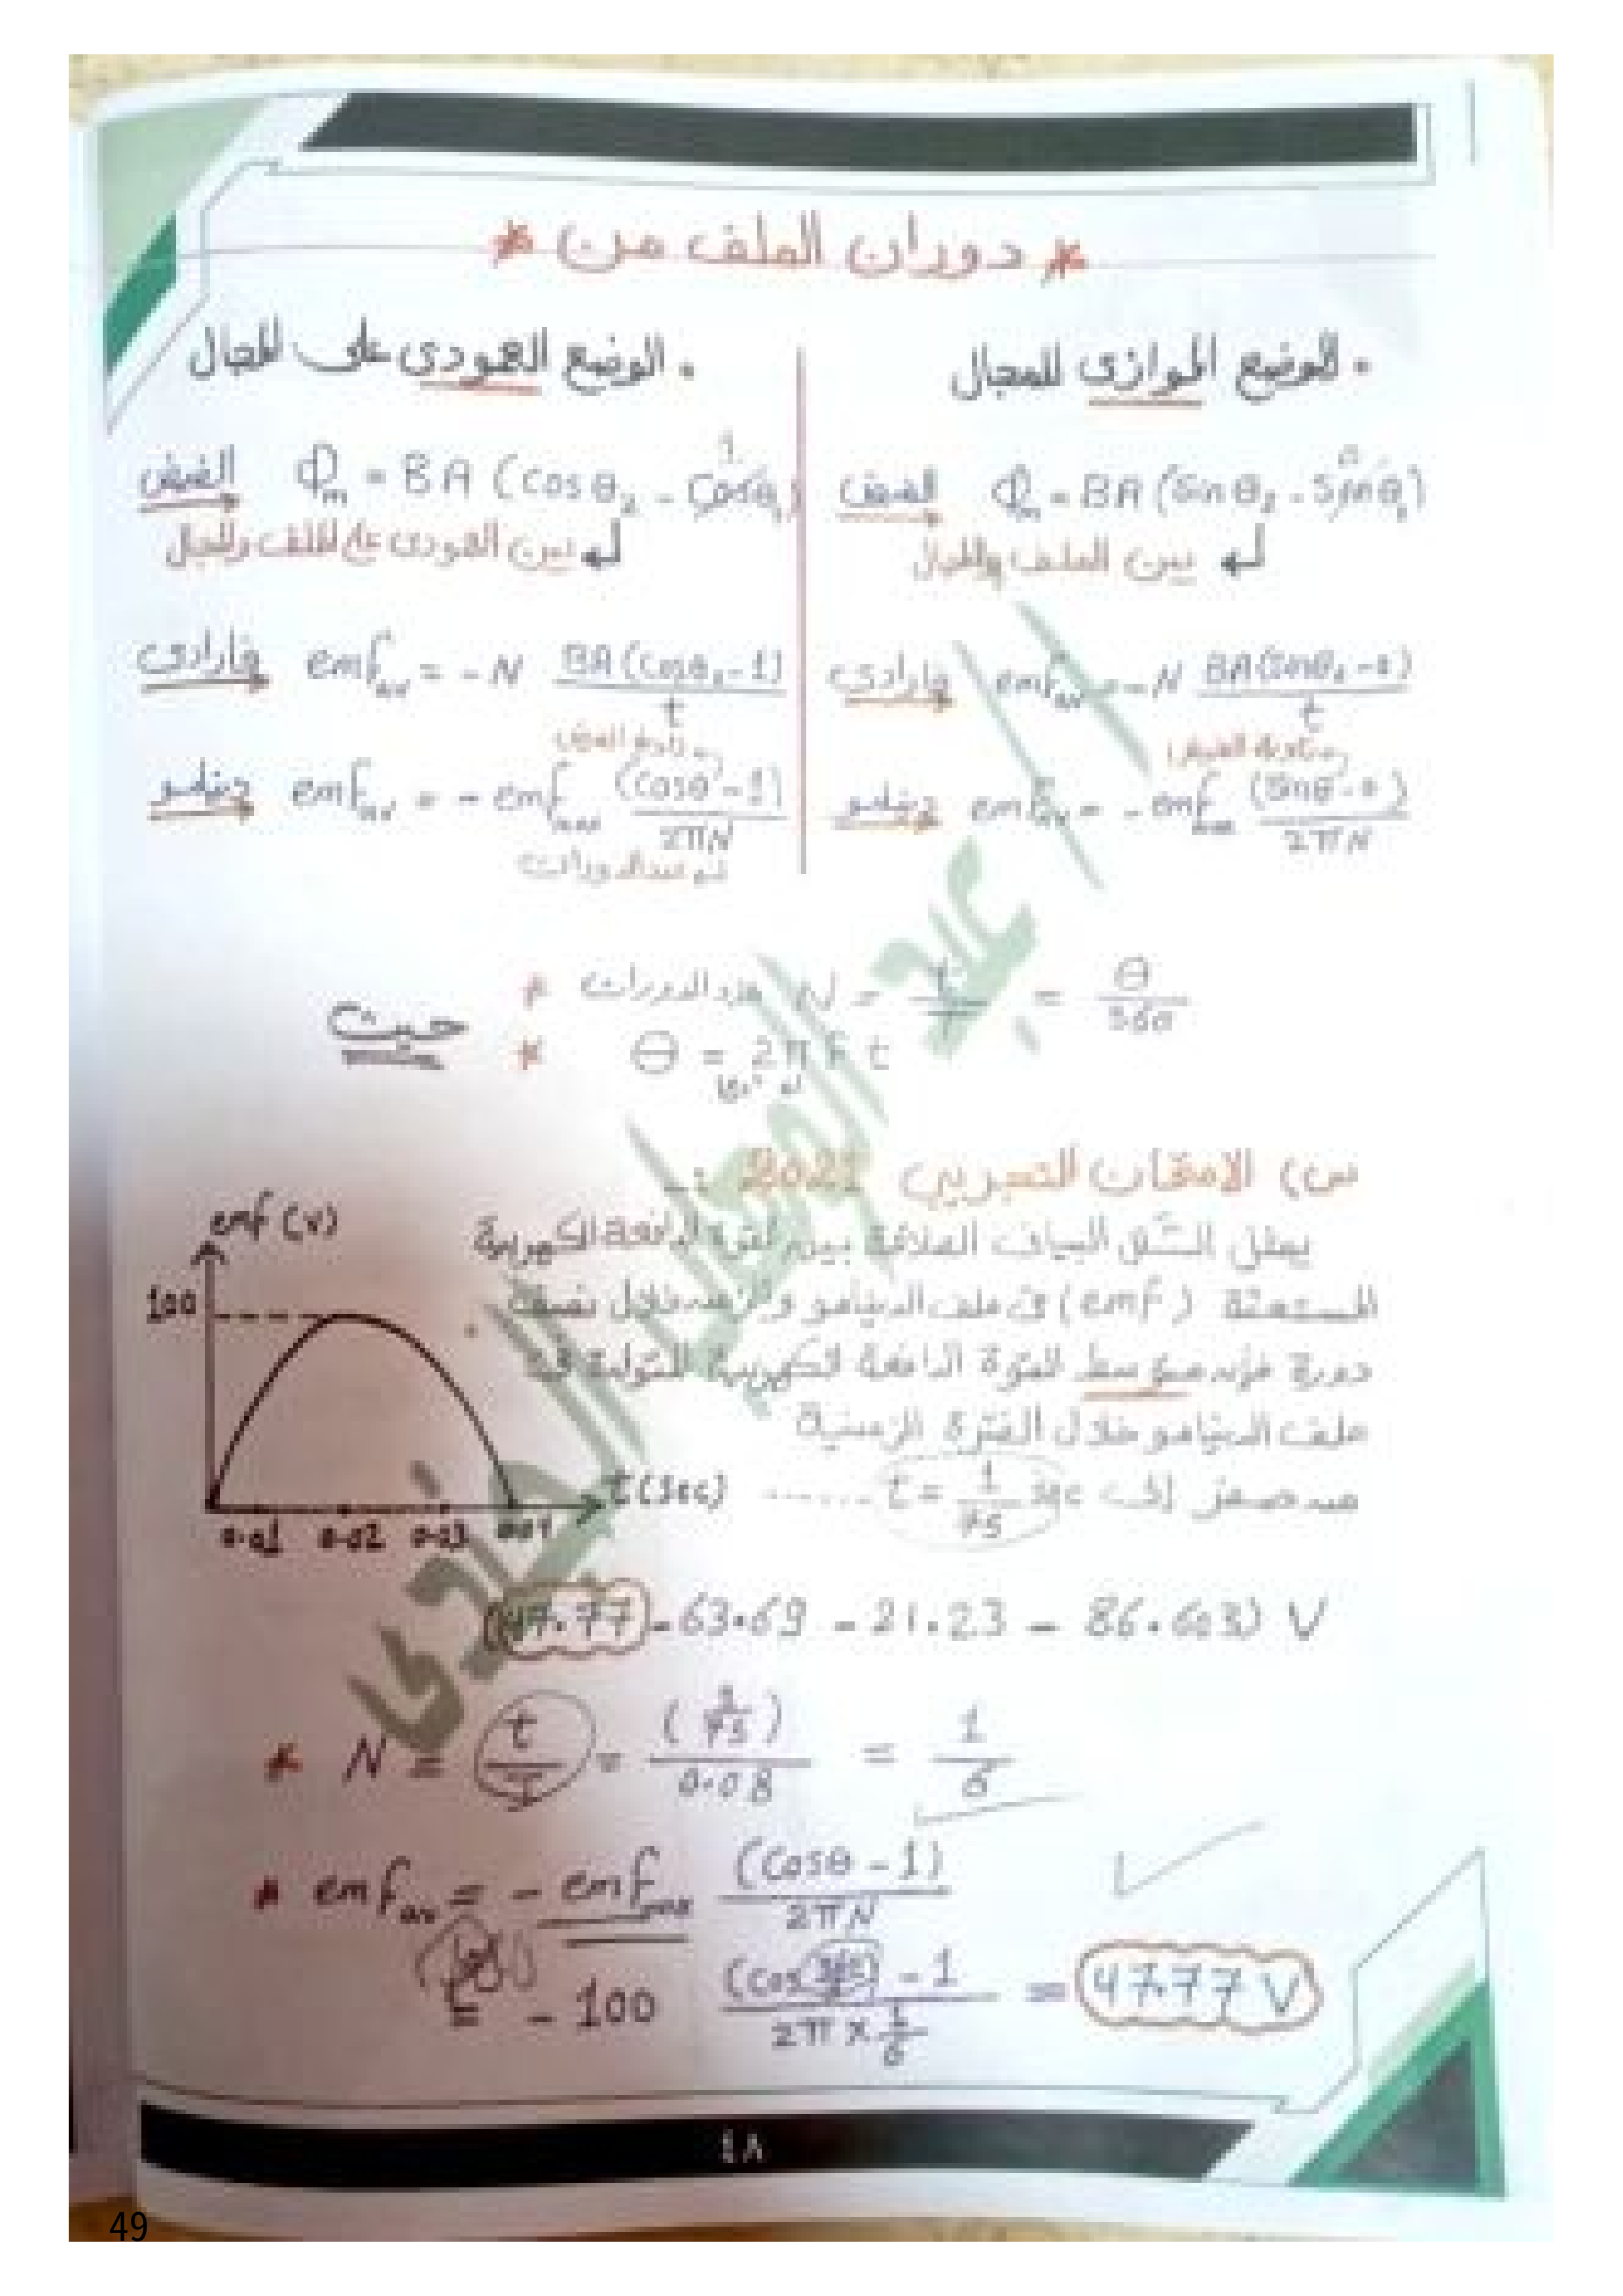 * دوران الملف من *
• الوضع الموازى للمجال
الفيض Φm = BA (Sin θ2 - Sin θ1) 0
بين الملف والمجال
فاراداى emf av = - N BA(Sinθ2 - 0) / t
زاوية الفيض
دينامو emf av = - emf max (Sinθ - 0) / 2πN
• الوضع العمودى على المجال
الفيض Φm = BA (cos θ2 - Cosθ1) 1
بين العمودى على الملف والمجال
فاراداى emf av = - N BA (Cosθ2 - 1) / t
زاوية الفيض
دينامو emf av = - emf max (Cosθ - 1) / 2πN
عدد الدورات
حيث
* عدد الدورات N = t / T = θ / 360
* θ = 2π F t
س) الامتحان التجريبي 2021 :-
يمثل الشكل البيانى العلاقة بين القوة الدافعة الكهربية
المستحثة (emf) فى ملف الدينامو والزمن خلال نصف
دورة فإن متوسط القوة الدافعة الكهربية المتولدة فى
ملف الدينامو خلال الفترة الزمنية
من صفر إلى t = 1/75 sec ......
emf (V)
100
t (sec)
0.01 0.02 0.03 0.04
(47.77 - 63.69 - 21.23 - 86.603) V
* N = t / T = (1/75) / 0.08 = 1/6
* emf av = - emf max (Cosθ - 1) / 2πN
= - 100 (Cos 360/6 - 1 / 2π × 1/6 = 47.77 V
٤٨
49